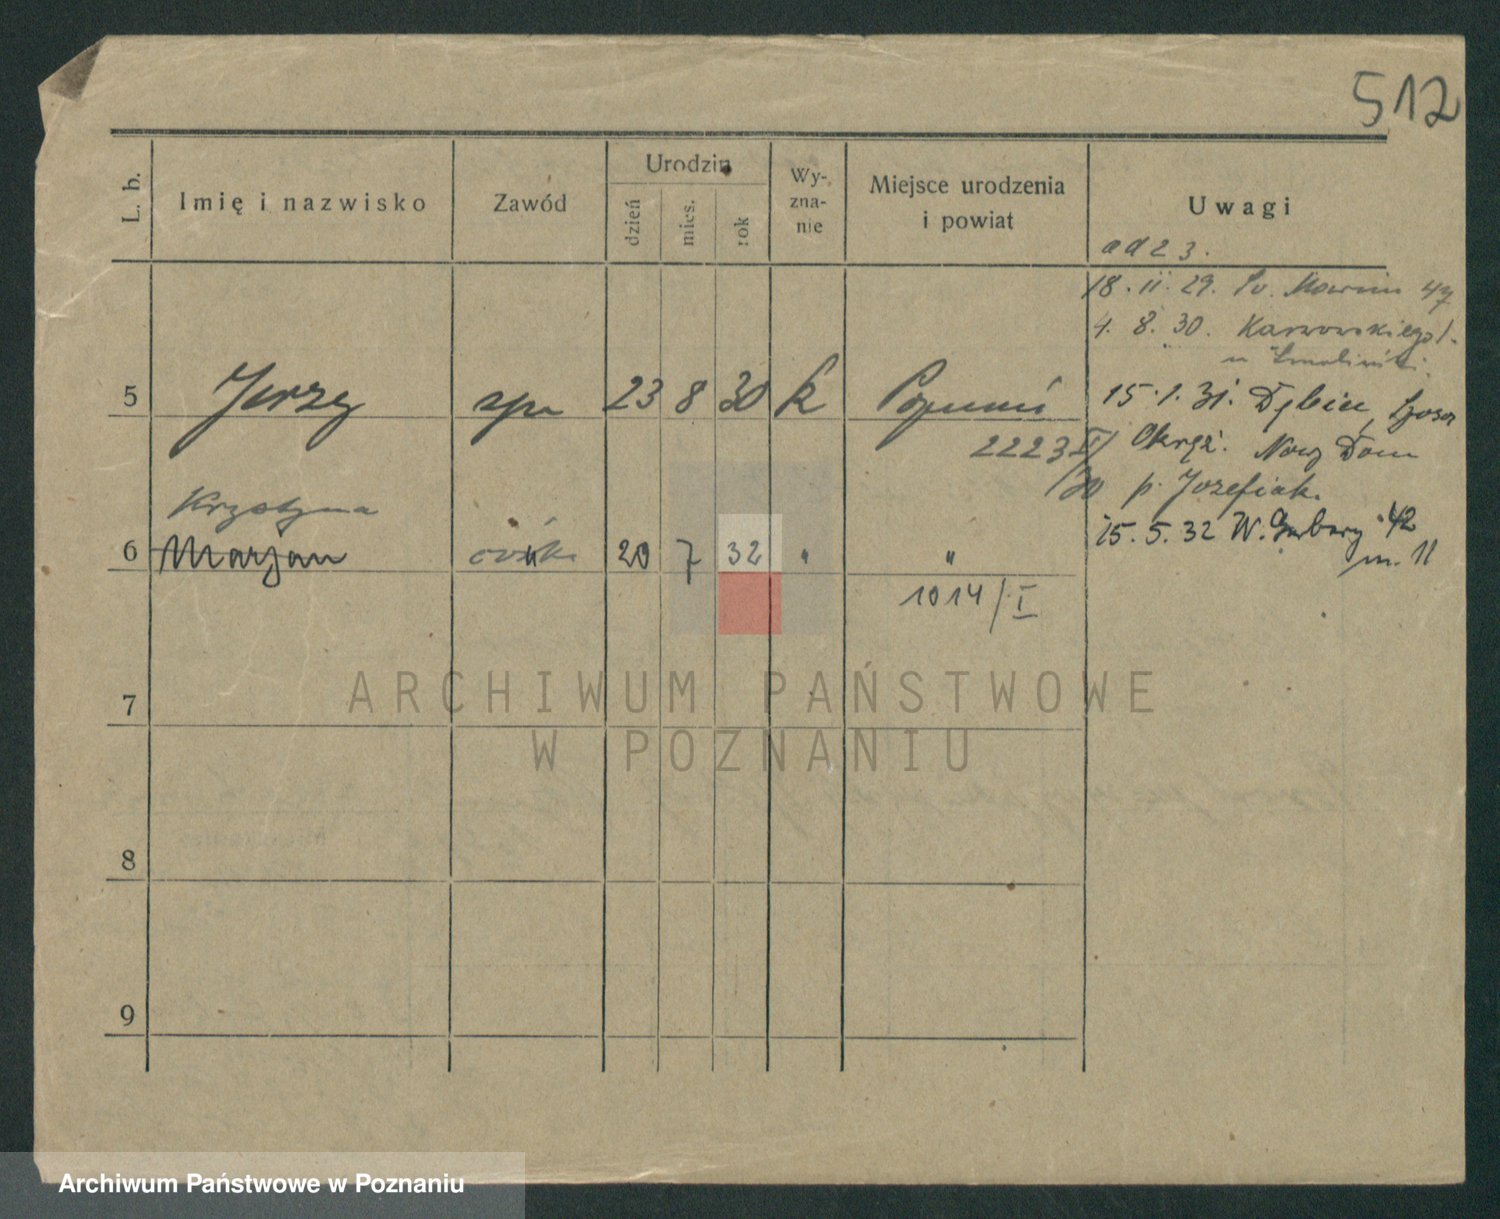 512
L. b.
Imię i nazwisko
Zawód
Urodzin
dzień
mies.
rok
Wy-
zna-
nie
Miejsce urodzenia
i powiat
Uwagi
ad 2 3.
18. 11. 29.
4. 8. 30. Karwowskiego 1.
5 Jerzy syn 23 8 30 k Poznań
2223 I/
/30
15. 1. 31. Dębiec,
Okręż. Nowy Dom
p. Józefiak.
15. 5. 32 W. Garbary 42
m. 11
Krystyna
6 Marjan córka 20 7 32 " "
1014/I
7
8
9
ARCHIWUM PAŃSTWOWE
W POZNANIU
Archiwum Państwowe w Poznaniu